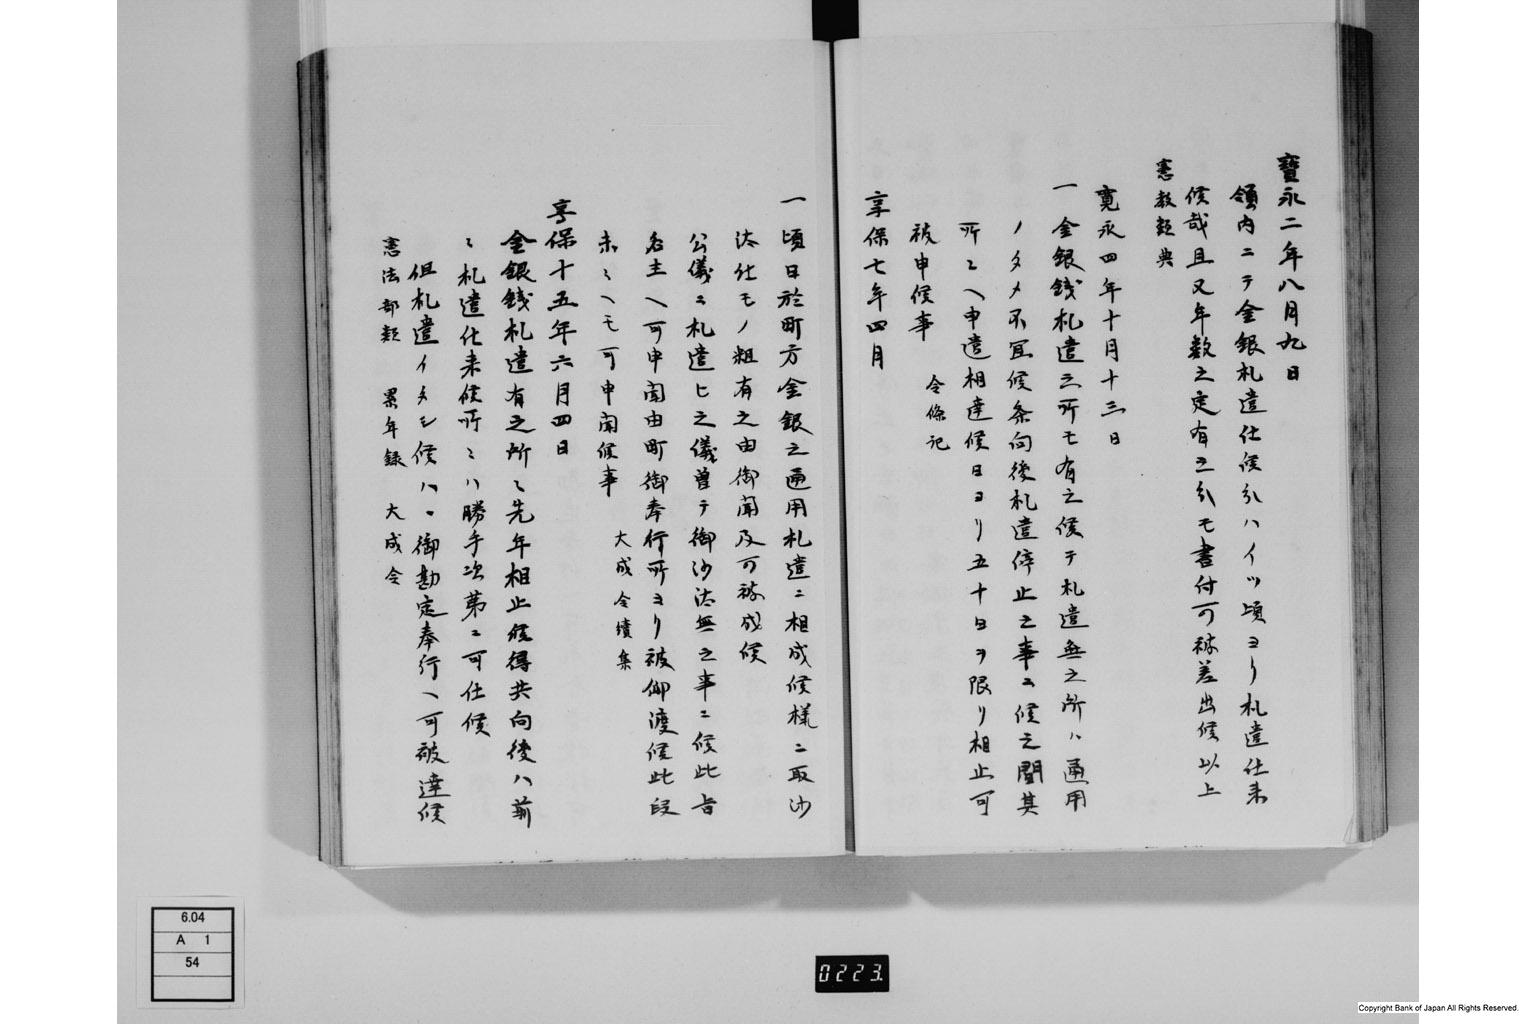 寶永二年八月九日
領内ニテ金銀札遣仕候分ハイツ頃ヨリ札遣仕来
候哉且又年数之定有之分モ書付可被差出候以上
憲教類典
寛永四年十月十三日
一 金銀銭札遣之所モ有之候テ札遣無之所ハ通用
ノタメ不宜候条向後札遣停止之事ニ候之間其
所ニヘ申遣相達候日ヨリ五十日ヲ限リ相止可
被申候事 令條記
享保七年四月
一 頃日於町方金銀之通用札遣ニ相成候様ニ取沙
汰仕モノ粗有之由御聞及可被成候
公儀ニ札遣ヒ之儀曽テ御沙汰無之事ニ候此旨
名主ヘ可申聞由町御奉行所ヨリ被仰渡候此段
末ミヘモ可申聞候事 大成令續集
享保十五年六月四日
金銀銭札遣有之所ミ先年相止候得共向後ハ前
ミ札遣仕来候所ミハ勝手次第ニ可仕候
但札遣イタシ候ハヽ御勘定奉行ヘ可被達候
憲法部類 累年録 大成令
6.04
A 1
54
0223.
Copyright Bank of Japan All Rights Reserved.